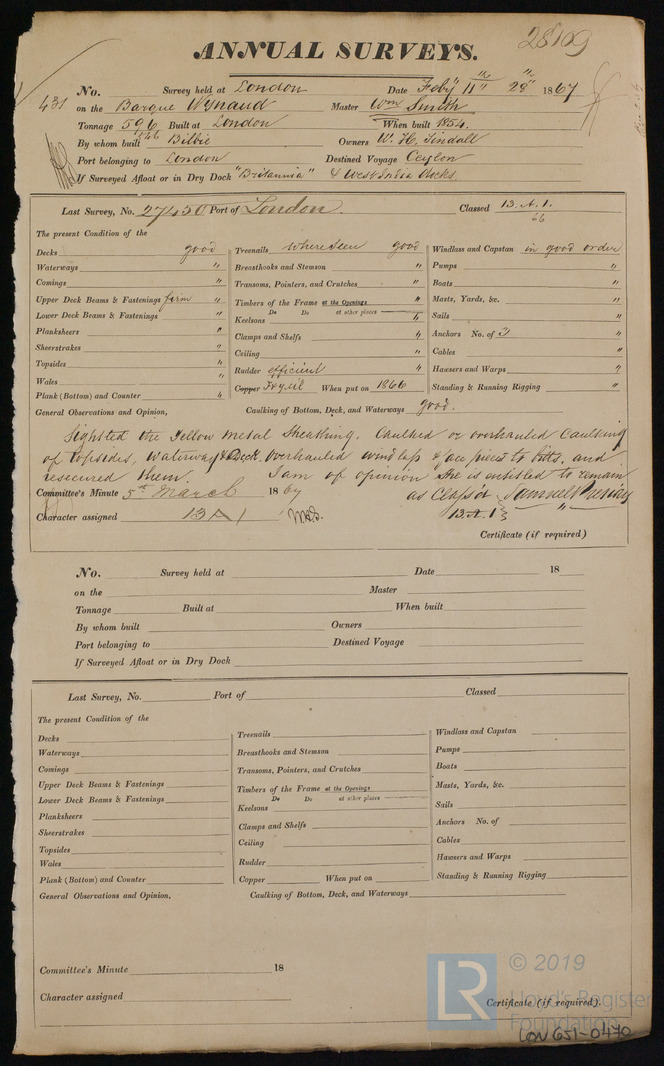 28109
ANNUAL SURVEYS.
No. Survey held at London Date Feby 11th 28th 1867
431 on the Barque Wynaud Master Wm Smith
Tonnage 596 Built at London When built 1854.
546
By whom built Bilbie Owners W. H. Tindall
Port belonging to London Destined Voyage Ceylon
If Surveyed Afloat or in Dry Dock "Britannia" & West India Docks.
Last Survey, No. 27450 Port of London. Classed 13. A. 1.
66
The present Condition of the
Decks good Treenails where seen good Windlass and Capstan in good order
Waterways " Breasthooks and Stemson " Pumps "
Comings " Transoms, Pointers, and Crutches " Boats "
Upper Deck Beams & Fastenings firm " Timbers of the Frame at the Openings " Masts, Yards, &c. "
Do Do at other places
Lower Deck Beams & Fastenings " Keelsons " Sails "
Planksheers " Clamps and Shelfs " Anchors No. of 3 "
Sheerstrakes " Ceiling " Cables "
Topsides " Rudder efficient " Hawsers and Warps "
Wales " Copper Fx Y. M. When put on 1866 Standing & Running Rigging "
Plank (Bottom) and Counter "
General Observations and Opinion, Caulking of Bottom, Deck, and Waterways good.
Sighted the Yellow Metal Sheathing. Caulked or overhauled Caulking
of topsides, Waterways & Deck. Overhauled windlass & face pieces to bitts, and
resecured them. I am of opinion she is entitled to remain
Committee's Minute 5th March 1867 as Classed Samuel
Character assigned 13 A 1 13. A. 1 "
Certificate (if required)
No. Survey held at Date 18
on the Master
Tonnage Built at When built
By whom built Owners
Port belonging to Destined Voyage
If Surveyed Afloat or in Dry Dock
Last Survey, No. Port of Classed
The present Condition of the
Decks Treenails Windlass and Capstan
Waterways Breasthooks and Stemson Pumps
Comings Transoms, Pointers, and Crutches Boats
Upper Deck Beams & Fastenings Timbers of the Frame at the Openings Masts, Yards, &c.
Do Do at other places
Lower Deck Beams & Fastenings Keelsons Sails
Planksheers Clamps and Shelfs Anchors No. of
Sheerstrakes Ceiling Cables
Topsides Rudder Hawsers and Warps
Wales Copper When put on Standing & Running Rigging
Plank (Bottom) and Counter
General Observations and Opinion, Caulking of Bottom, Deck, and Waterways
Committee's Minute 18
Character assigned
Certificate (if required).
LR © 2019
Lloyd's Register
Foundation
LON 651-0470